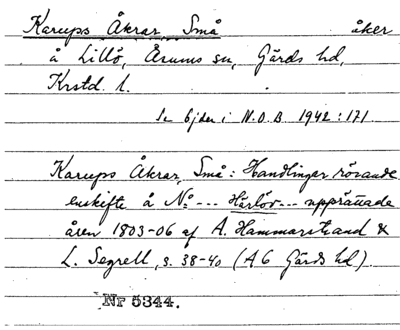 Karups Åkrar, Små åker
å Lillö, Åsums sn, Gärds hd,
Krstd. l.
Se Ejder i N.O.B. 1942:171
Karups Åkrar, Små: Handlingar rörande
enskifte å No --- Härlöv --- upprättade
åren 1803-06 af A. Hammarstrand &
L. Segrell, s. 38-40 (A6 Gärds hd).
NP 5344.